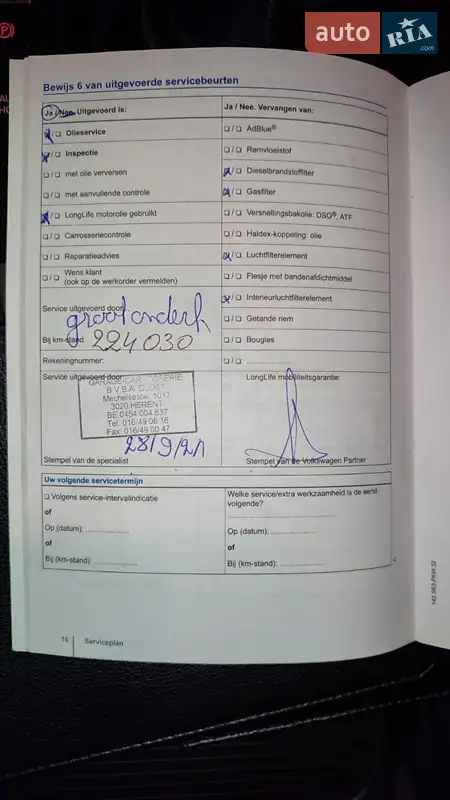 auto RIA.com
Bewijs 6 van uitgevoerde servicebeurten
Ja / Nee. Uitgevoerd is:
☒/☐ Olieservice
☒/☐ Inspectie
☐/☐ met olie verversen
☐/☐ met aanvullende controle
☒/☐ LongLife motorolie gebruikt
☐/☐ Carrosseriecontrole
☐/☐ Reparatieadvies
☐/☐ Wens klant
(ook op de werkorder vermelden)
Service uitgevoerd door:
groot onderh
Bij km-stand: 224030
Rekeningnummer:
Service uitgevoerd door:
B.V.B.A.
Mechelsestw. 1013
3020 HERENT
BE.0454.004.837
Tel. 016/49 06 16
Fax: 016/49 00 47
28/9/21
Stempel van de specialist
Ja / Nee. Vervangen van:
☐/☐ AdBlue®
☐/☐ Remvloeistof
☒/☐ Dieselbrandstoffilter
☒/☐ Gasfilter
☐/☐ Versnellingsbakolie: DSG®, ATF
☐/☐ Haldex-koppeling: olie
☒/☐ Luchtfilterelement
☐/☐ Flesje met bandenafdichtmiddel
☒/☐ Interieurluchtfilterelement
☐/☐ Getande riem
☐/☐ Bougies
☐/☐ ....................
LongLife mobiliteitsgarantie:
Stempel van de Volkswagen Partner
Uw volgende servicetermijn
☐ Volgens service-intervalindicatie
of
Op (datum): ....................
of
Bij (km-stand): ....................
Welke service/extra werkzaamheid is de eerst-
volgende?
....................
Op (datum): ....................
of
Bij (km-stand): ....................
16 Serviceplan